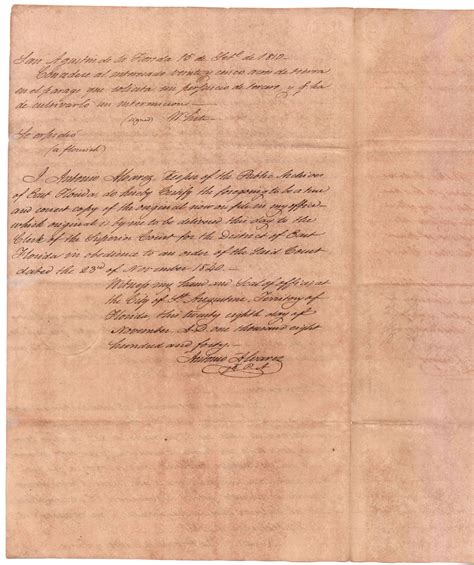 San Agustin de la Florida 15 de Feb.o de 1810.
Concedese al interesado veinte y cinco acres de tierra
en el parage que solicita sin perjuicio de tercero, y p.a
de cultivarlo sin intermision.
(signed) White
Se expidió
(a flourish)
I Antonio Alvarez, Keeper of the Public Archives
of East Florida do hereby Certify the foregoing to be a true
and correct copy of the original now on file in my office
which original is by me to be delivered this day to the
Clerk of the Superior Court for the District of East
Florida in obedience to an order of the said Court
dated the 23d of November 1840.
Witness my hand and Seal of office at
the City of St Augustine, Territory of
Florida, this twenty eighth day of
November A.D. one thousand eight
hundred and forty.
Antonio Alvarez
K.P.A.